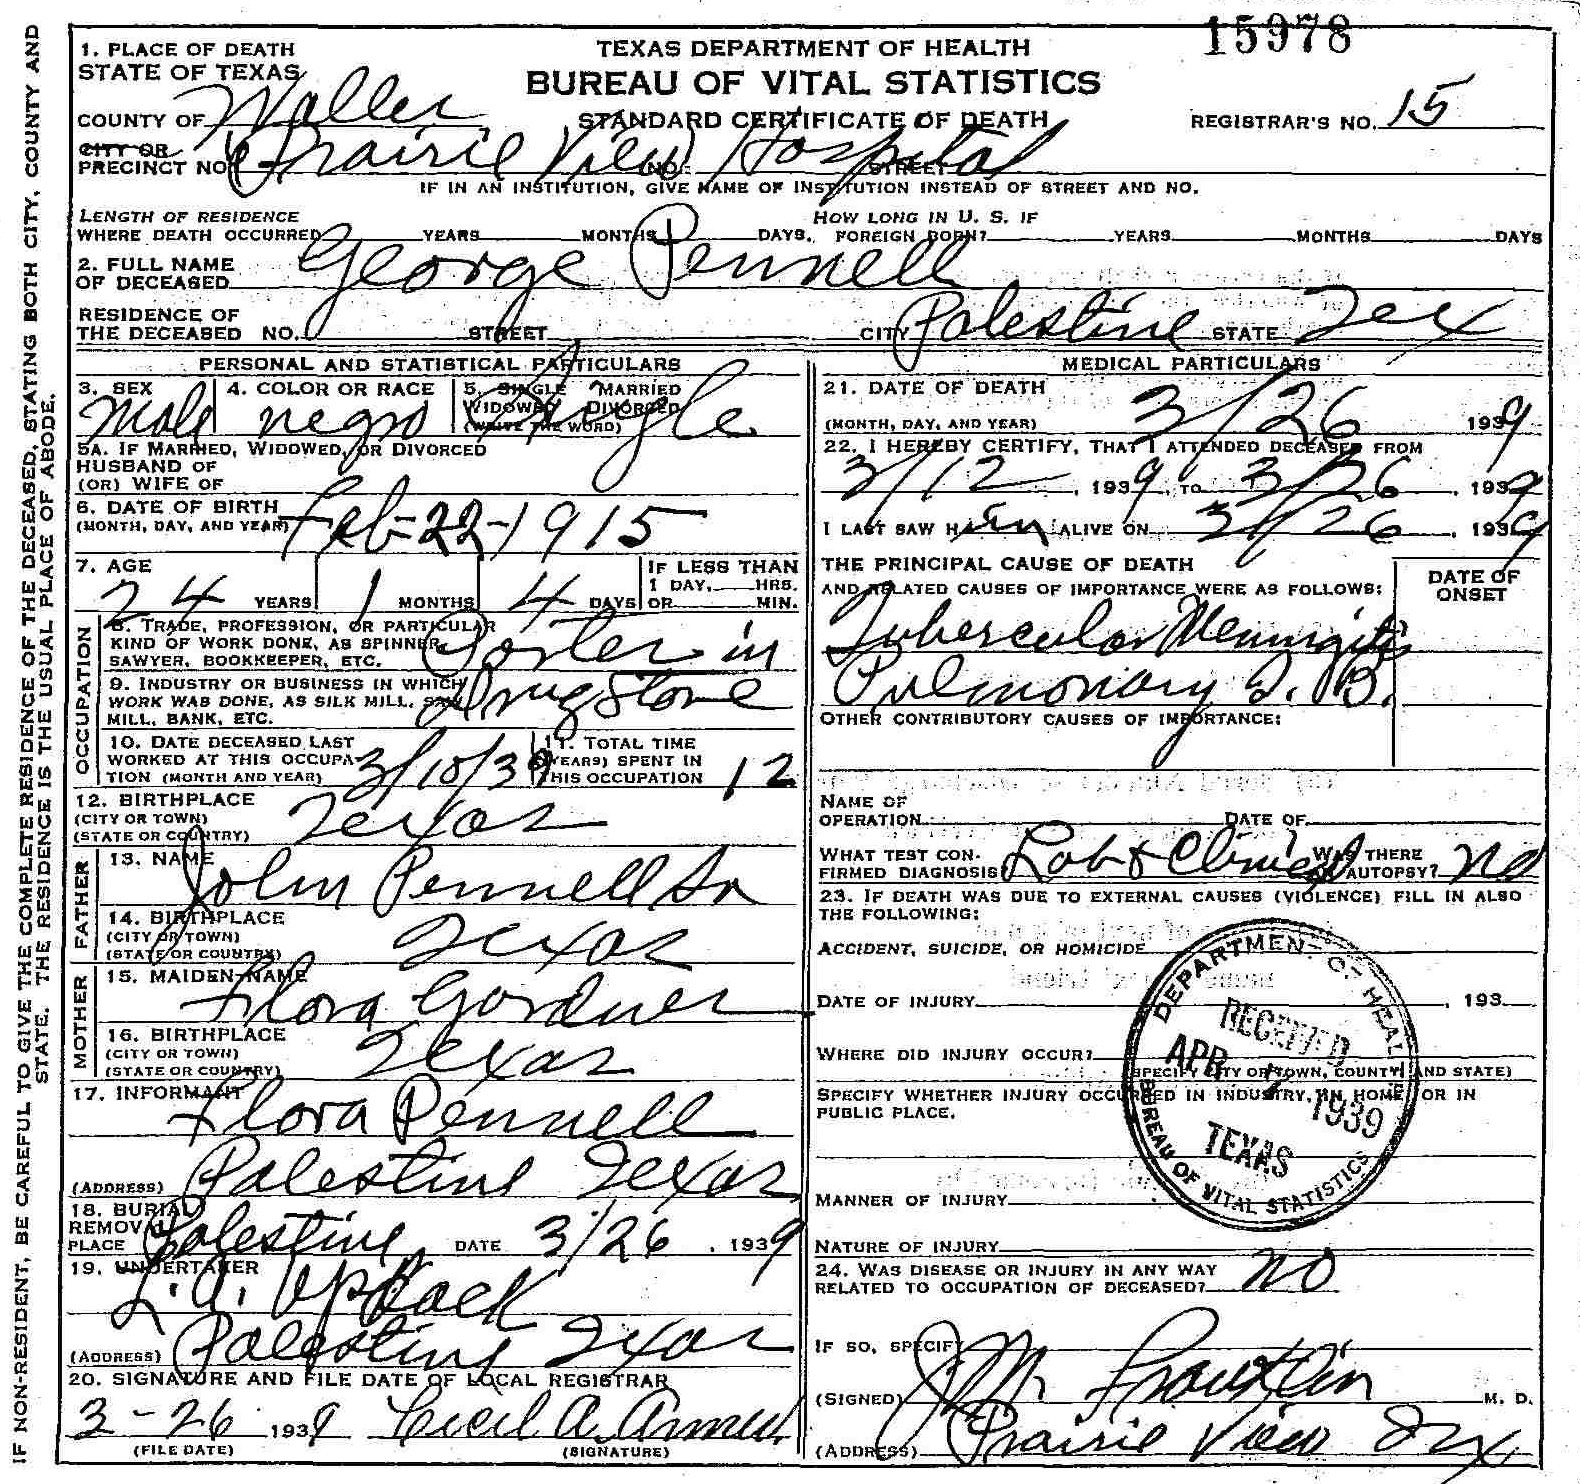 15978
1. PLACE OF DEATH
STATE OF TEXAS
TEXAS DEPARTMENT OF HEALTH
BUREAU OF VITAL STATISTICS
STANDARD CERTIFICATE OF DEATH
COUNTY OF Waller
REGISTRAR'S NO. 15
CITY OR
PRECINCT NO. Prairie View Hospital NO. STREET
IF IN AN INSTITUTION, GIVE NAME OF INSTITUTION INSTEAD OF STREET AND NO.
LENGTH OF RESIDENCE
WHERE DEATH OCCURRED YEARS MONTHS DAYS. HOW LONG IN U. S. IF FOREIGN BORN? YEARS MONTHS DAYS
2. FULL NAME
OF DECEASED George Pennell
RESIDENCE OF
THE DECEASED NO. STREET CITY Palestine STATE Tex
PERSONAL AND STATISTICAL PARTICULARS
3. SEX Male
4. COLOR OR RACE negro
5. SINGLE MARRIED
WIDOWED DIVORCED
(WRITE THE WORD) Single
5A. IF MARRIED, WIDOWED, OR DIVORCED
HUSBAND OF
(OR) WIFE OF
6. DATE OF BIRTH
(MONTH, DAY, AND YEAR) Feb-22-1915
7. AGE
24 YEARS 1 MONTHS 4 DAYS
IF LESS THAN
1 DAY, HRS.
OR MIN.
OCCUPATION
8. TRADE, PROFESSION, OR PARTICULAR
KIND OF WORK DONE, AS SPINNER,
SAWYER, BOOKKEEPER, ETC. Porter in
9. INDUSTRY OR BUSINESS IN WHICH
WORK WAS DONE, AS SILK MILL, SAW
MILL, BANK, ETC. Drug Store
10. DATE DECEASED LAST
WORKED AT THIS OCCUPA-
TION (MONTH AND YEAR) 3/10/39
11. TOTAL TIME
(YEARS) SPENT IN
THIS OCCUPATION 12
12. BIRTHPLACE
(CITY OR TOWN)
(STATE OR COUNTRY) Texas
FATHER
13. NAME John Pennell Sr
14. BIRTHPLACE
(CITY OR TOWN)
(STATE OR COUNTRY) Texas
MOTHER
15. MAIDEN NAME Flora Gardner
16. BIRTHPLACE
(CITY OR TOWN)
(STATE OR COUNTRY) Texas
17. INFORMANT Flora Pennell
(ADDRESS) Palestine Texas
18. BURIAL
REMOVAL
PLACE Palestine DATE 3/26, 1939
19. UNDERTAKER
L. A.
(ADDRESS) Palestine Texas
20. SIGNATURE AND FILE DATE OF LOCAL REGISTRAR
3-26 1939 Cecil A.
(FILE DATE) (SIGNATURE)
MEDICAL PARTICULARS
21. DATE OF DEATH
(MONTH, DAY, AND YEAR) 3/26 1939
22. I HEREBY CERTIFY, THAT I ATTENDED DECEASED FROM
3/12, 1939, TO 3/26, 1939
I LAST SAW HIM ALIVE ON 3/26, 1939
THE PRINCIPAL CAUSE OF DEATH
AND RELATED CAUSES OF IMPORTANCE WERE AS FOLLOWS:
DATE OF
ONSET
Tubercular Meningitis
Pulmonary T. B.
OTHER CONTRIBUTORY CAUSES OF IMPORTANCE:
NAME OF
OPERATION DATE OF
WHAT TEST CON-
FIRMED DIAGNOSIS Lab & Clinical WAS THERE
AN AUTOPSY? no
23. IF DEATH WAS DUE TO EXTERNAL CAUSES (VIOLENCE) FILL IN ALSO
THE FOLLOWING:
ACCIDENT, SUICIDE, OR HOMICIDE
DATE OF INJURY , 193
WHERE DID INJURY OCCUR?
(SPECIFY CITY OR TOWN, COUNTY, AND STATE)
SPECIFY WHETHER INJURY OCCURRED IN INDUSTRY, IN HOME, OR IN
PUBLIC PLACE.
MANNER OF INJURY
NATURE OF INJURY
24. WAS DISEASE OR INJURY IN ANY WAY
RELATED TO OCCUPATION OF DECEASED? no
IF SO, SPECIFY
(SIGNED) J M Franklin M. D.
(ADDRESS) Prairie View Tex
DEPARTMENT OF HEALTH
RECEIVED
APR 1939
TEXAS
BUREAU OF VITAL STATISTICS
IF NON-RESIDENT, BE CAREFUL TO GIVE THE COMPLETE RESIDENCE OF THE DECEASED, STATING BOTH CITY, COUNTY AND
STATE. THE RESIDENCE IS THE USUAL PLACE OF ABODE.